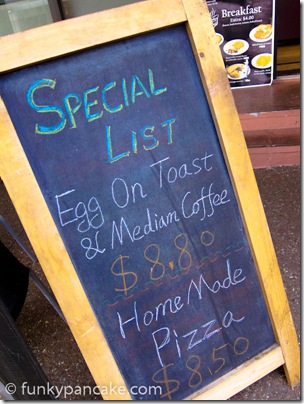 Breakfast
Special
List
Egg On Toast
& Mediam Coffee
$ 8.80
Home Made
Pizza
$ 8.50
© funkypancake.com